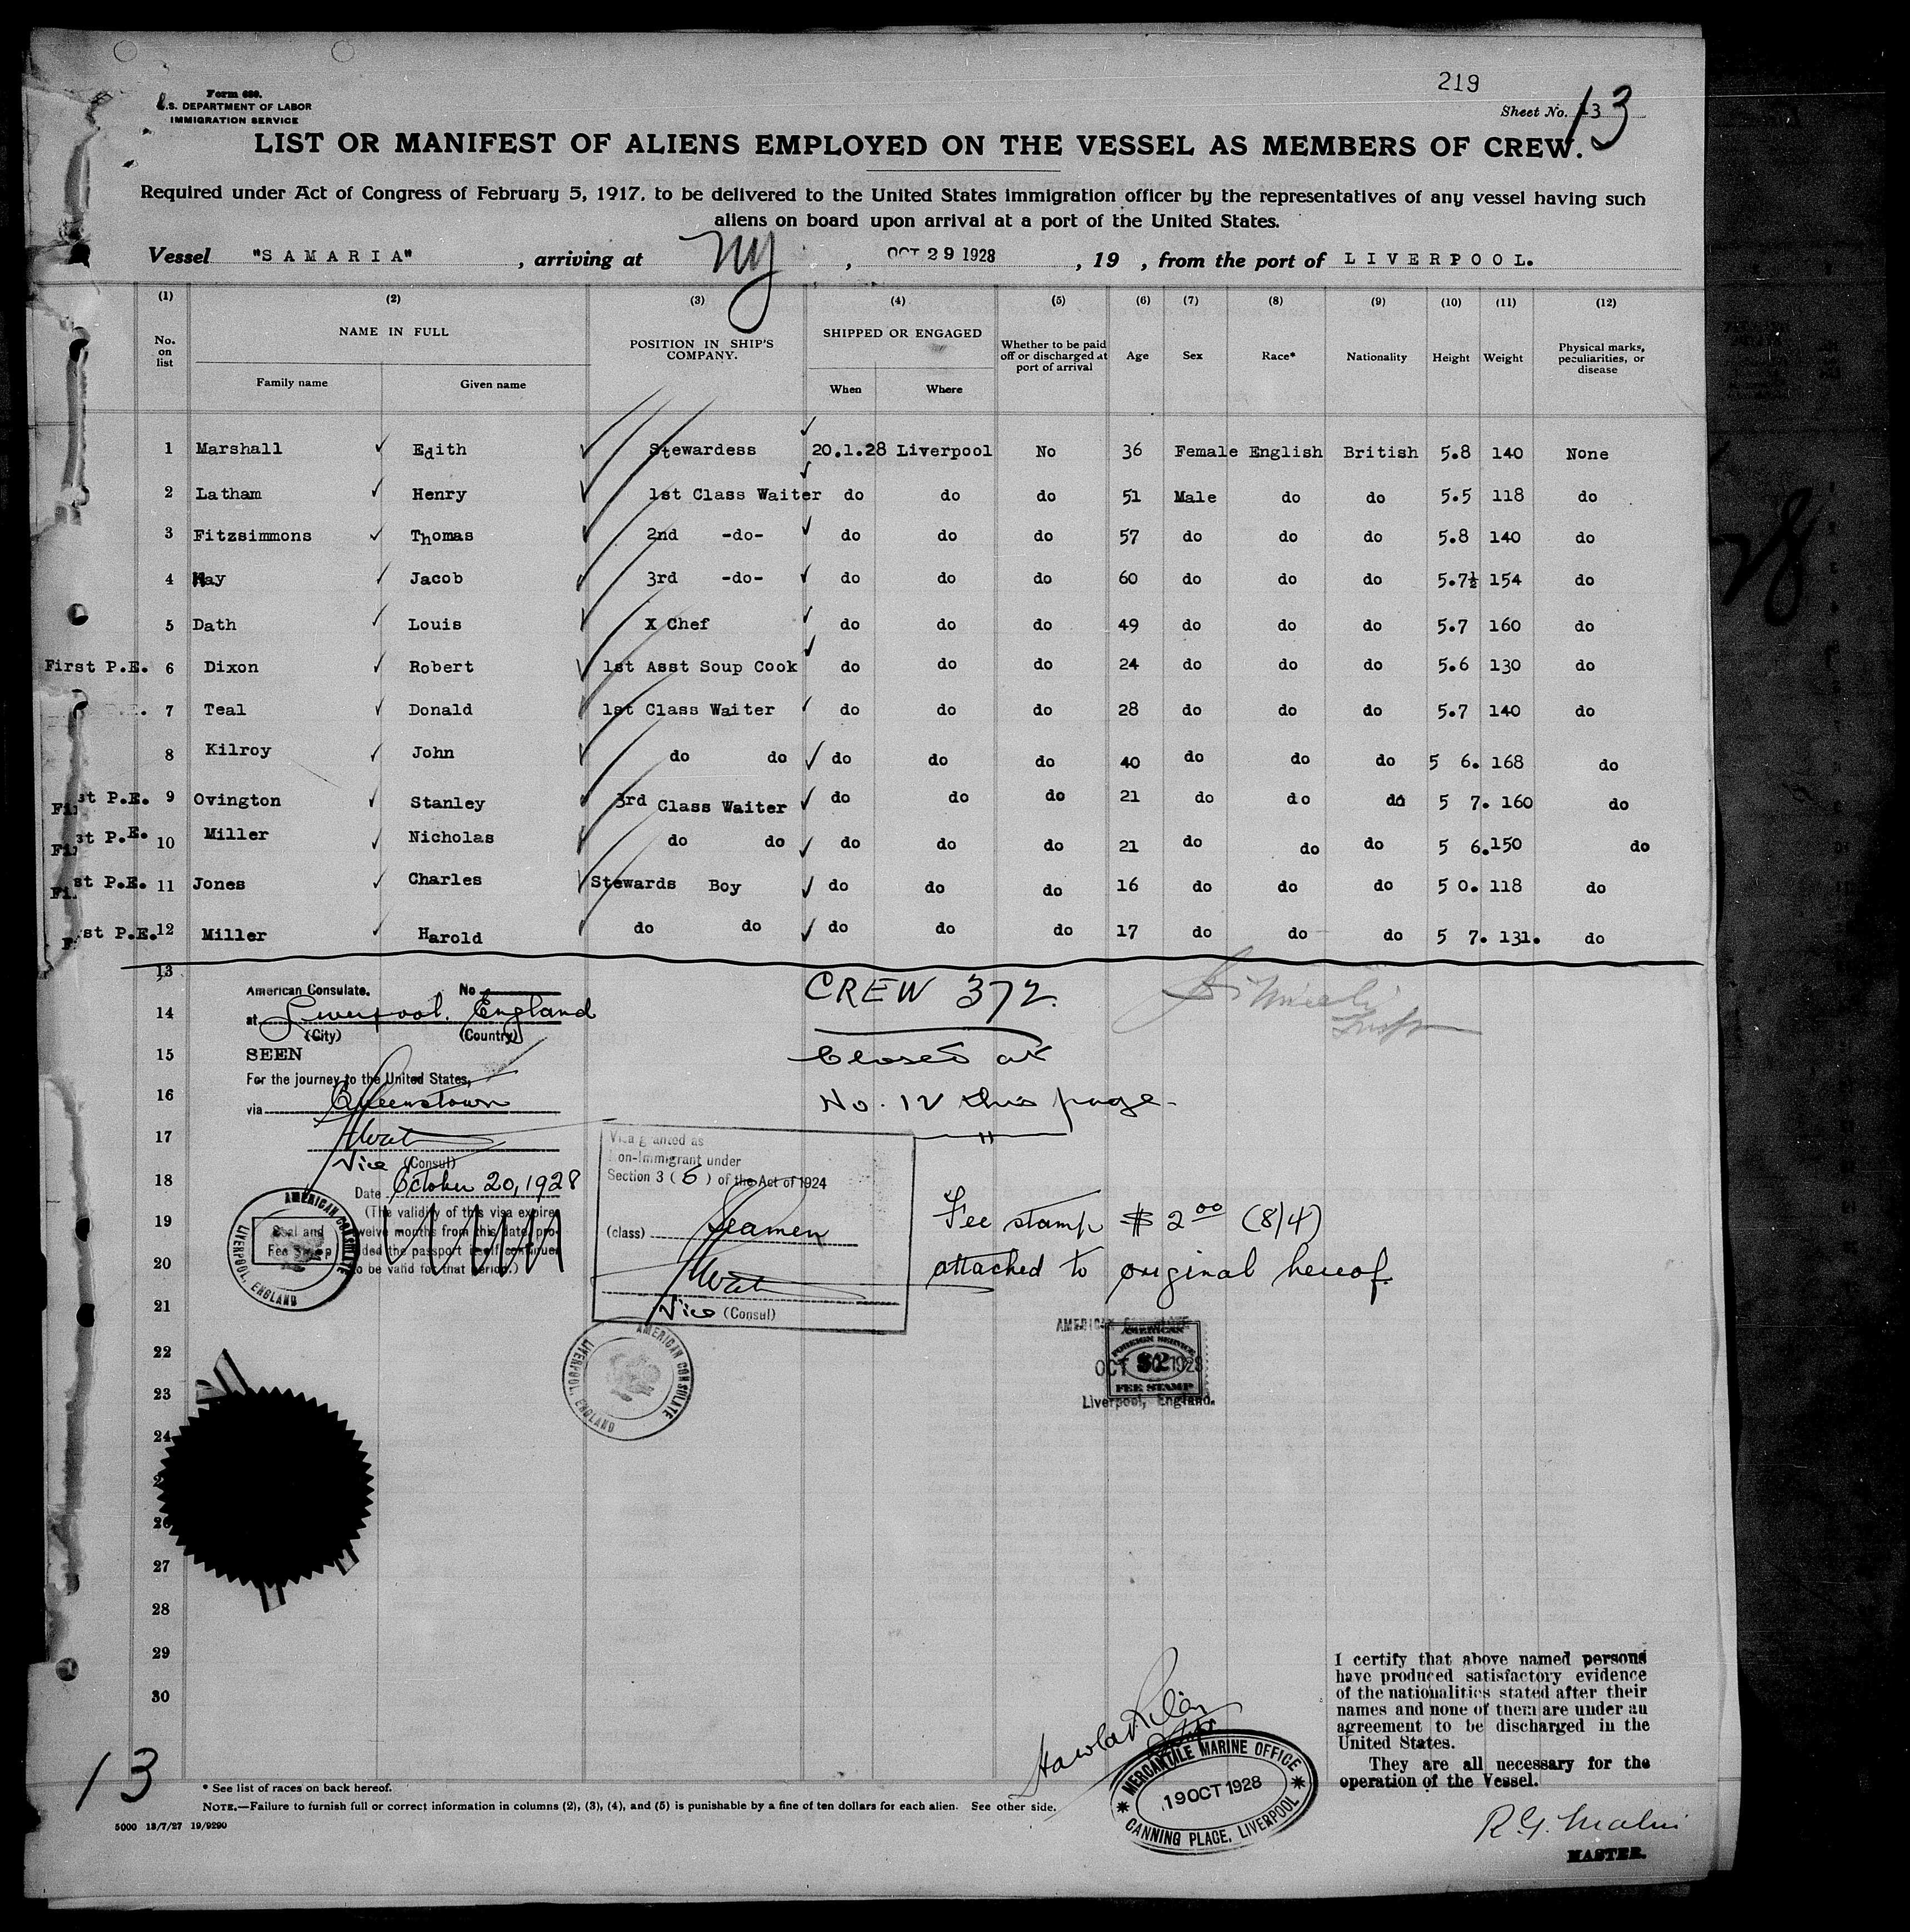 219
Form 680.
U.S. DEPARTMENT OF LABOR
IMMIGRATION SERVICE
Sheet No. 13
13
LIST OR MANIFEST OF ALIENS EMPLOYED ON THE VESSEL AS MEMBERS OF CREW.
Required under Act of Congress of February 5, 1917, to be delivered to the United States immigration officer by the representatives of any vessel having such
aliens on board upon arrival at a port of the United States.
Vessel "SAMARIA", arriving at NY, OCT 29 1928, 19 , from the port of LIVERPOOL.
(1) (2) (3) (4) (5) (6) (7) (8) (9) (10) (11) (12)
No. on list NAME IN FULL POSITION IN SHIP'S COMPANY. SHIPPED OR ENGAGED Whether to be paid off or discharged at port of arrival Age Sex Race* Nationality Height Weight Physical marks, peculiarities, or disease
Family name Given name When Where
1 Marshall Edith Stewardess 20.1.28 Liverpool No 36 Female English British 5.8 140 None
2 Latham Henry 1st Class Waiter do do do 51 Male do do 5.5 118 do
3 Fitzsimmons Thomas 2nd -do- do do do 57 do do do 5.8 140 do
4 Kay Jacob 3rd -do- do do do 60 do do do 5.7½ 154 do
5 Dath Louis X Chef do do do 49 do do do 5.7 160 do
First P.E. 6 Dixon Robert 1st Asst Soup Cook do do do 24 do do do 5.6 130 do
7 Teal Donald 1st Class Waiter do do do 28 do do do 5.7 140 do
8 Kilroy John do do do do do 40 do do do 5 6. 168 do
First P.E. 9 Ovington Stanley 3rd Class Waiter do do do 21 do do do 5 7. 160 do
First P.E. 10 Miller Nicholas do do do do do 21 do do do 5 6. 150 do
First P.E. 11 Jones Charles Stewards Boy do do do 16 do do do 5 0. 118 do
First P.E. 12 Miller Harold do do do do do 17 do do do 5 7. 131. do
13
14
15
16
17
18
19
20
21
22
23
24
26
27
28
29
30
American Consulate. No
at Liverpool, England
(City) (Country)
SEEN
For the journey to the United States,
via Queenstown
Vice (Consul)
Date October 20, 1928
(The validity of this visa expires
twelve months from this date, pro-
vided the passport itself continues
to be valid for that period.)
Seal and
Fee Stamp
AMERICAN CONSULATE
LIVERPOOL, ENGLAND
CREW 372.
Closed at
No. 12 this page.
Visa granted as
Non-Immigrant under
Section 3 (5) of the Act of 1924
(class) Seamen
Vice (Consul)
AMERICAN CONSULATE
LIVERPOOL, ENGLAND
Fee stamp $ 2.00 (8/4)
attached to original hereof.
AMERICAN
FOREIGN SERVICE
$2
FEE STAMP
OCT 20 1928
Liverpool, England.
I certify that above named persons
have produced satisfactory evidence
of the nationalities stated after their
names and none of them are under an
agreement to be discharged in the
United States.
They are all necessary for the
operation of the Vessel.
MERCANTILE MARINE OFFICE
19 OCT 1928
CANNING PLACE, LIVERPOOL
MASTER.
13
* See list of races on back hereof.
NOTE.—Failure to furnish full or correct information in columns (2), (3), (4), and (5) is punishable by a fine of ten dollars for each alien. See other side.
5000 13/7/27 19/9290